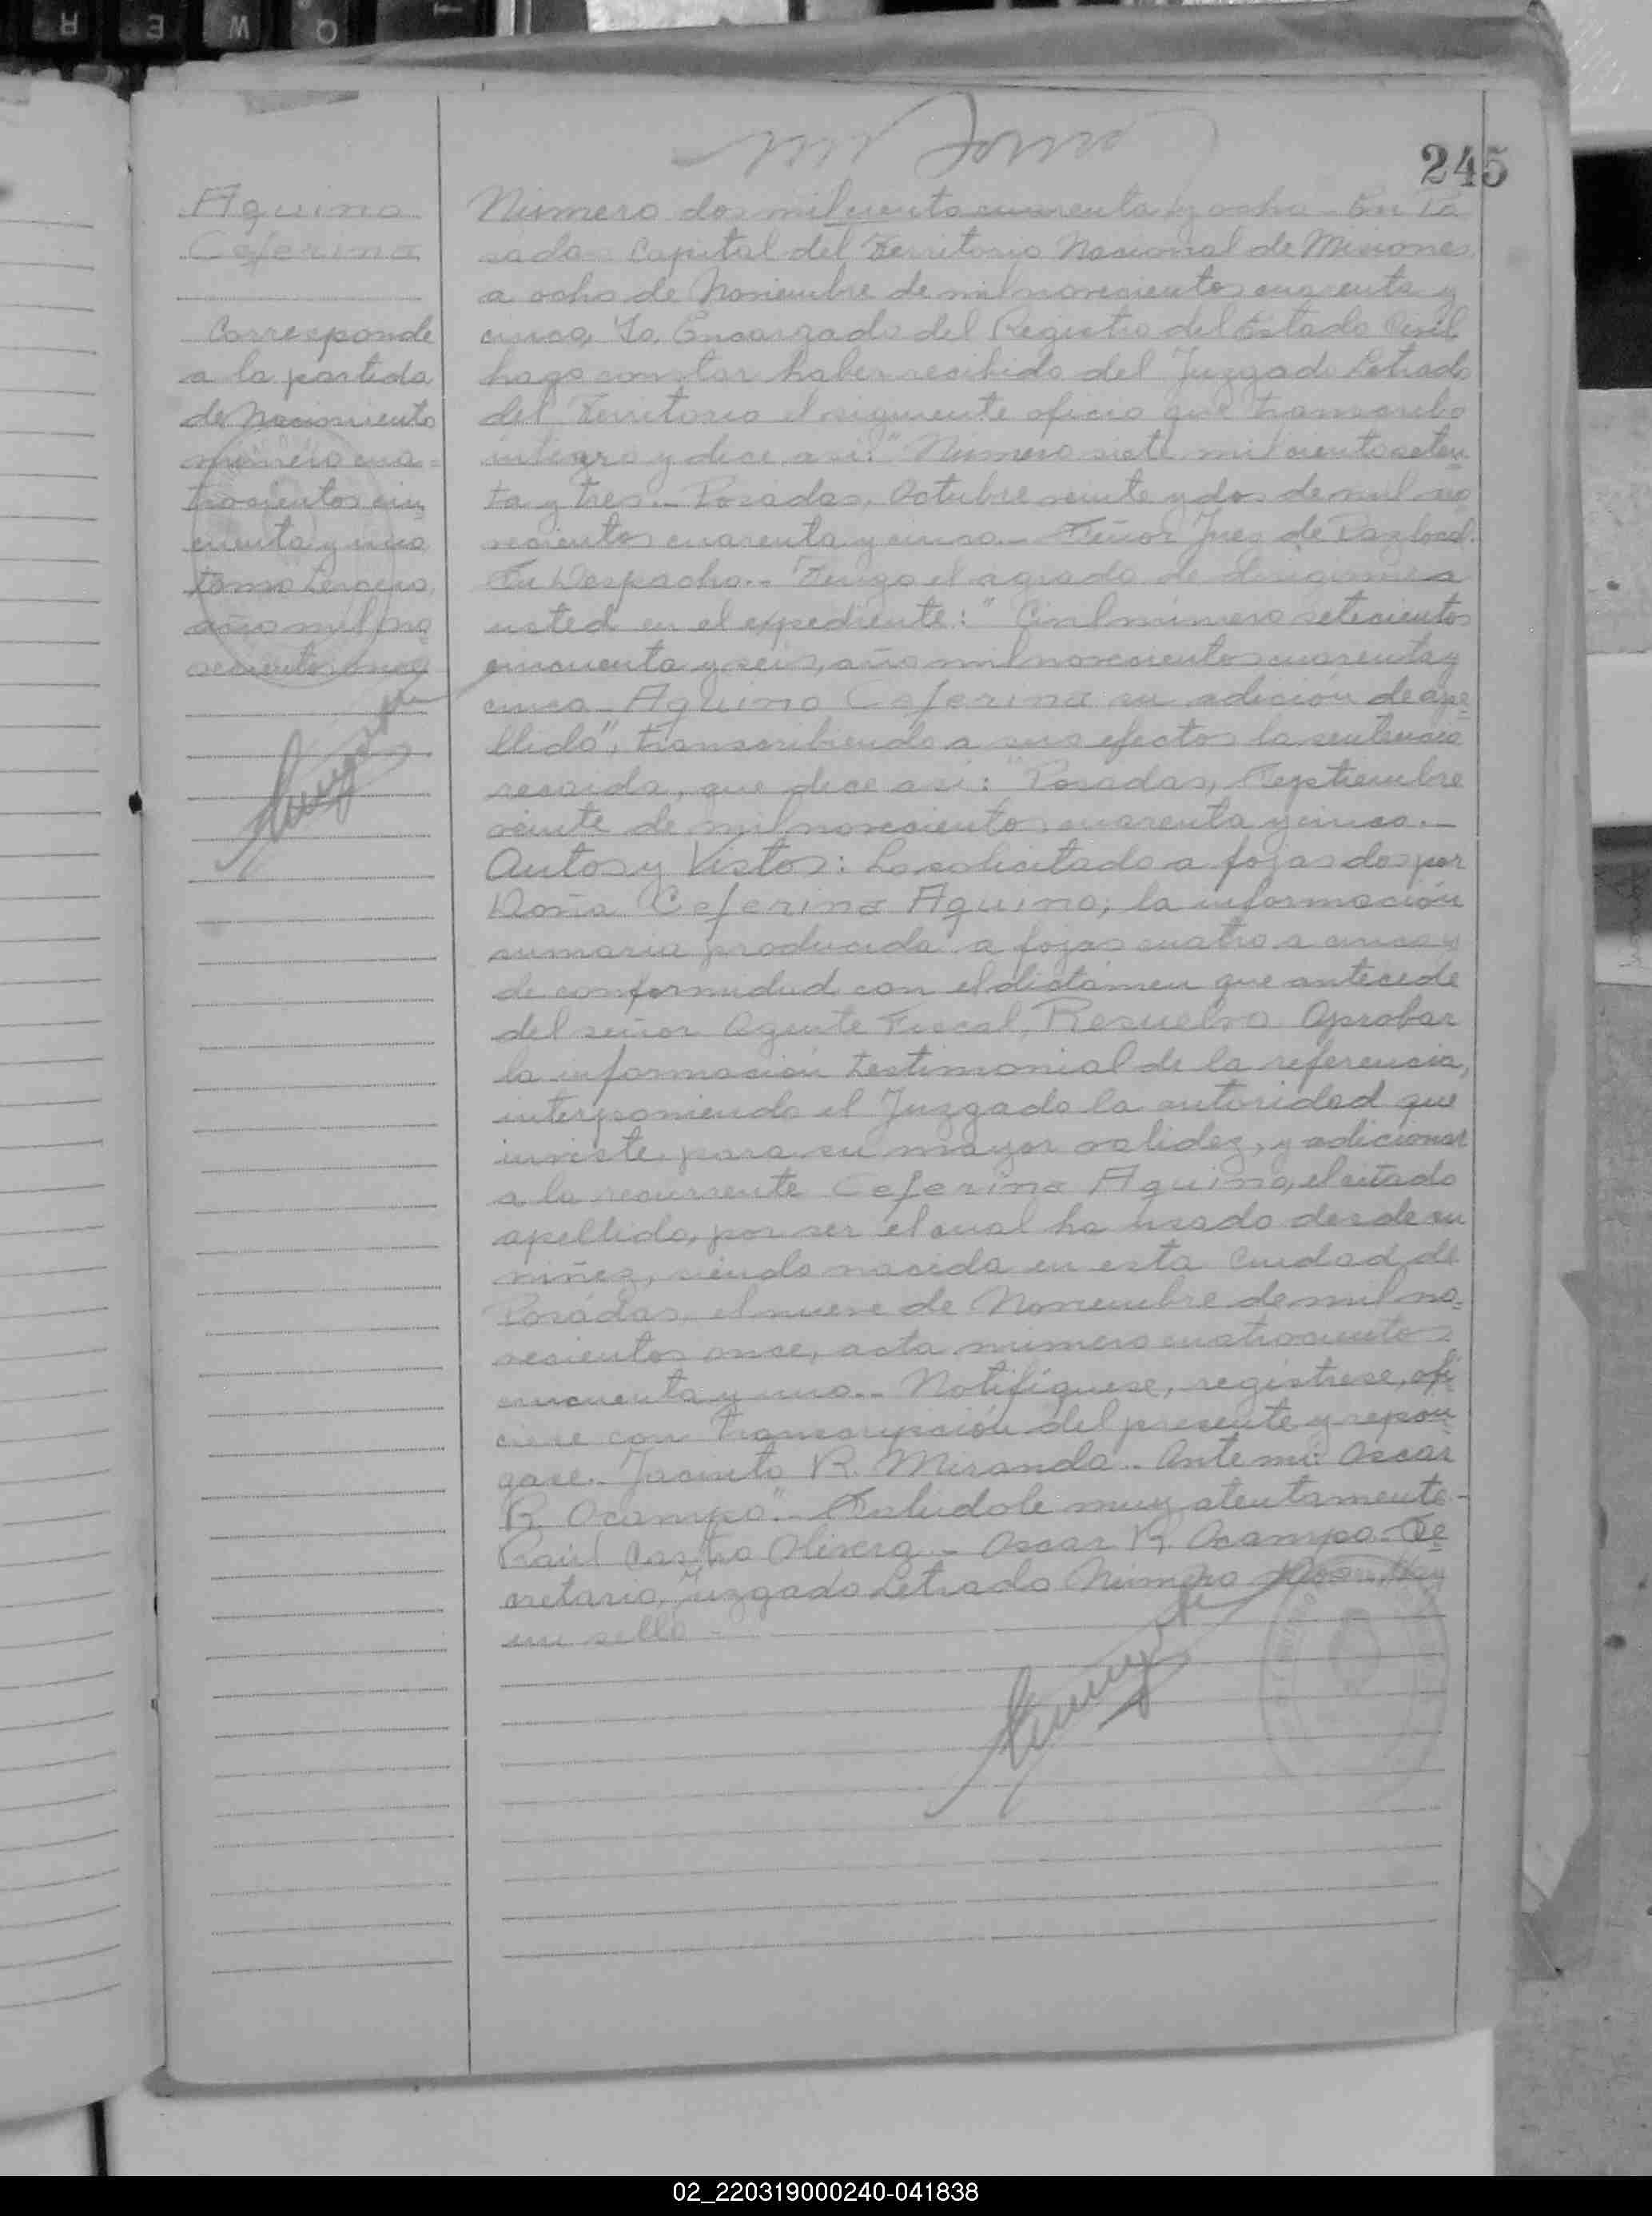 245
Aquino
Ceferina
Corresponde
a la partida
de Nacimiento
número cua=
trocientos cin
cuenta y uno
tomo tercero,
año mil no
vecientos once
Número dos mil ciento cuarenta y ocho - En Po
sadas Capital del Territorio Nacional de Misiones,
a ocho de Noviembre de mil novecientos cuarenta y
cinco, Yo, Encargado del Registro del Estado Civil
hago constar haber recibido del Juzgado Letrado
del Territorio el siguiente oficio que transcribo
íntegro y dice así: "Número siete mil ciento seten
ta y tres.- Posadas, Octubre veinte y dos de mil no
vecientos cuarenta y cinco.- Señor Juez de Paz local.
Su Despacho.- Tengo el agrado de dirigirme a
usted en el expediente: "Civil número setecientos
cincuenta y seis, año mil novecientos cuarenta y
cinco - Aquino Ceferina su adición de ape=
llido", transcribiendo a sus efectos la sentencia
recaída, que dice así: "Posadas, Septiembre
veinte de mil novecientos cuarenta y cinco.-
Autos y Vistos: Lo solicitado a fojas dos por
Doña Ceferina Aquino; la información
sumaria producida a fojas cuatro a cinco y
de conformidad con el dictámen que antecede
del señor Agente Fiscal, Resuelvo Aprobar
la información testimonial de la referencia,
interponiendo el Juzgado la autoridad que
inviste para su mayor validez, y adicionar
a la recurrente Ceferina Aquino, el citado
apellido, por ser el cual ha usado desde su
niñez, siendo nacida en esta Ciudad de
Posadas, el nueve de Noviembre de mil no=
vecientos once, acta número cuatrocientos
cincuenta y uno.- Notifíquese, regístrese, ofí
ciese con transcripción del presente y repón
gase.- Jacinto R. Miranda.- Ante mí: Oscar
R. Ocampo".- Salúdole muy atentamente.-
Raúl Castro Olivera - Oscar R. Ocampo - Se
cretario, Juzgado Letrado Número Hay
un sello -
02_220319000240-041838